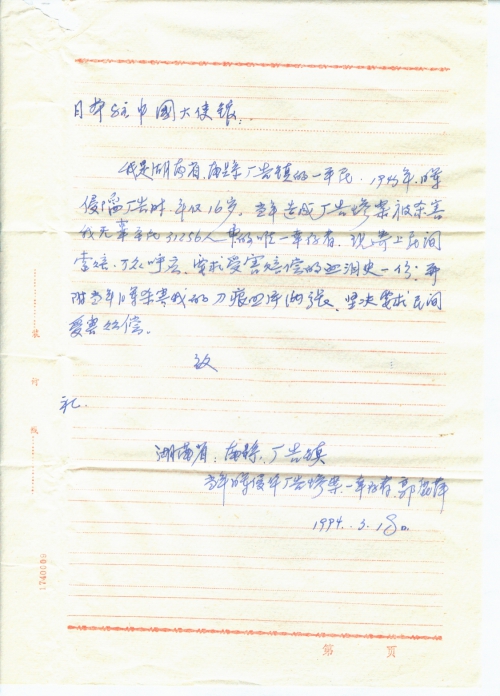 日本驻中国大使馆：
我是湖南省、南县厂窖镇的一平民．1943年、日军
侵占厂窖时、年仅16岁。当年造成厂窖惨案被杀害
我无辜平民31256人中的唯一幸存者、现寄上民间
索赔、万众呼应、要求受害赔偿的血泪史一份；再
附当年日军杀害我的刀痕照片两张、坚决要求民间
受害赔偿。
致
礼．
湖南省．南县．厂窖镇
当年日军侵华厂窖惨案一幸存者．郭
1994．3．18日．
装
订
线
1740089
第 页